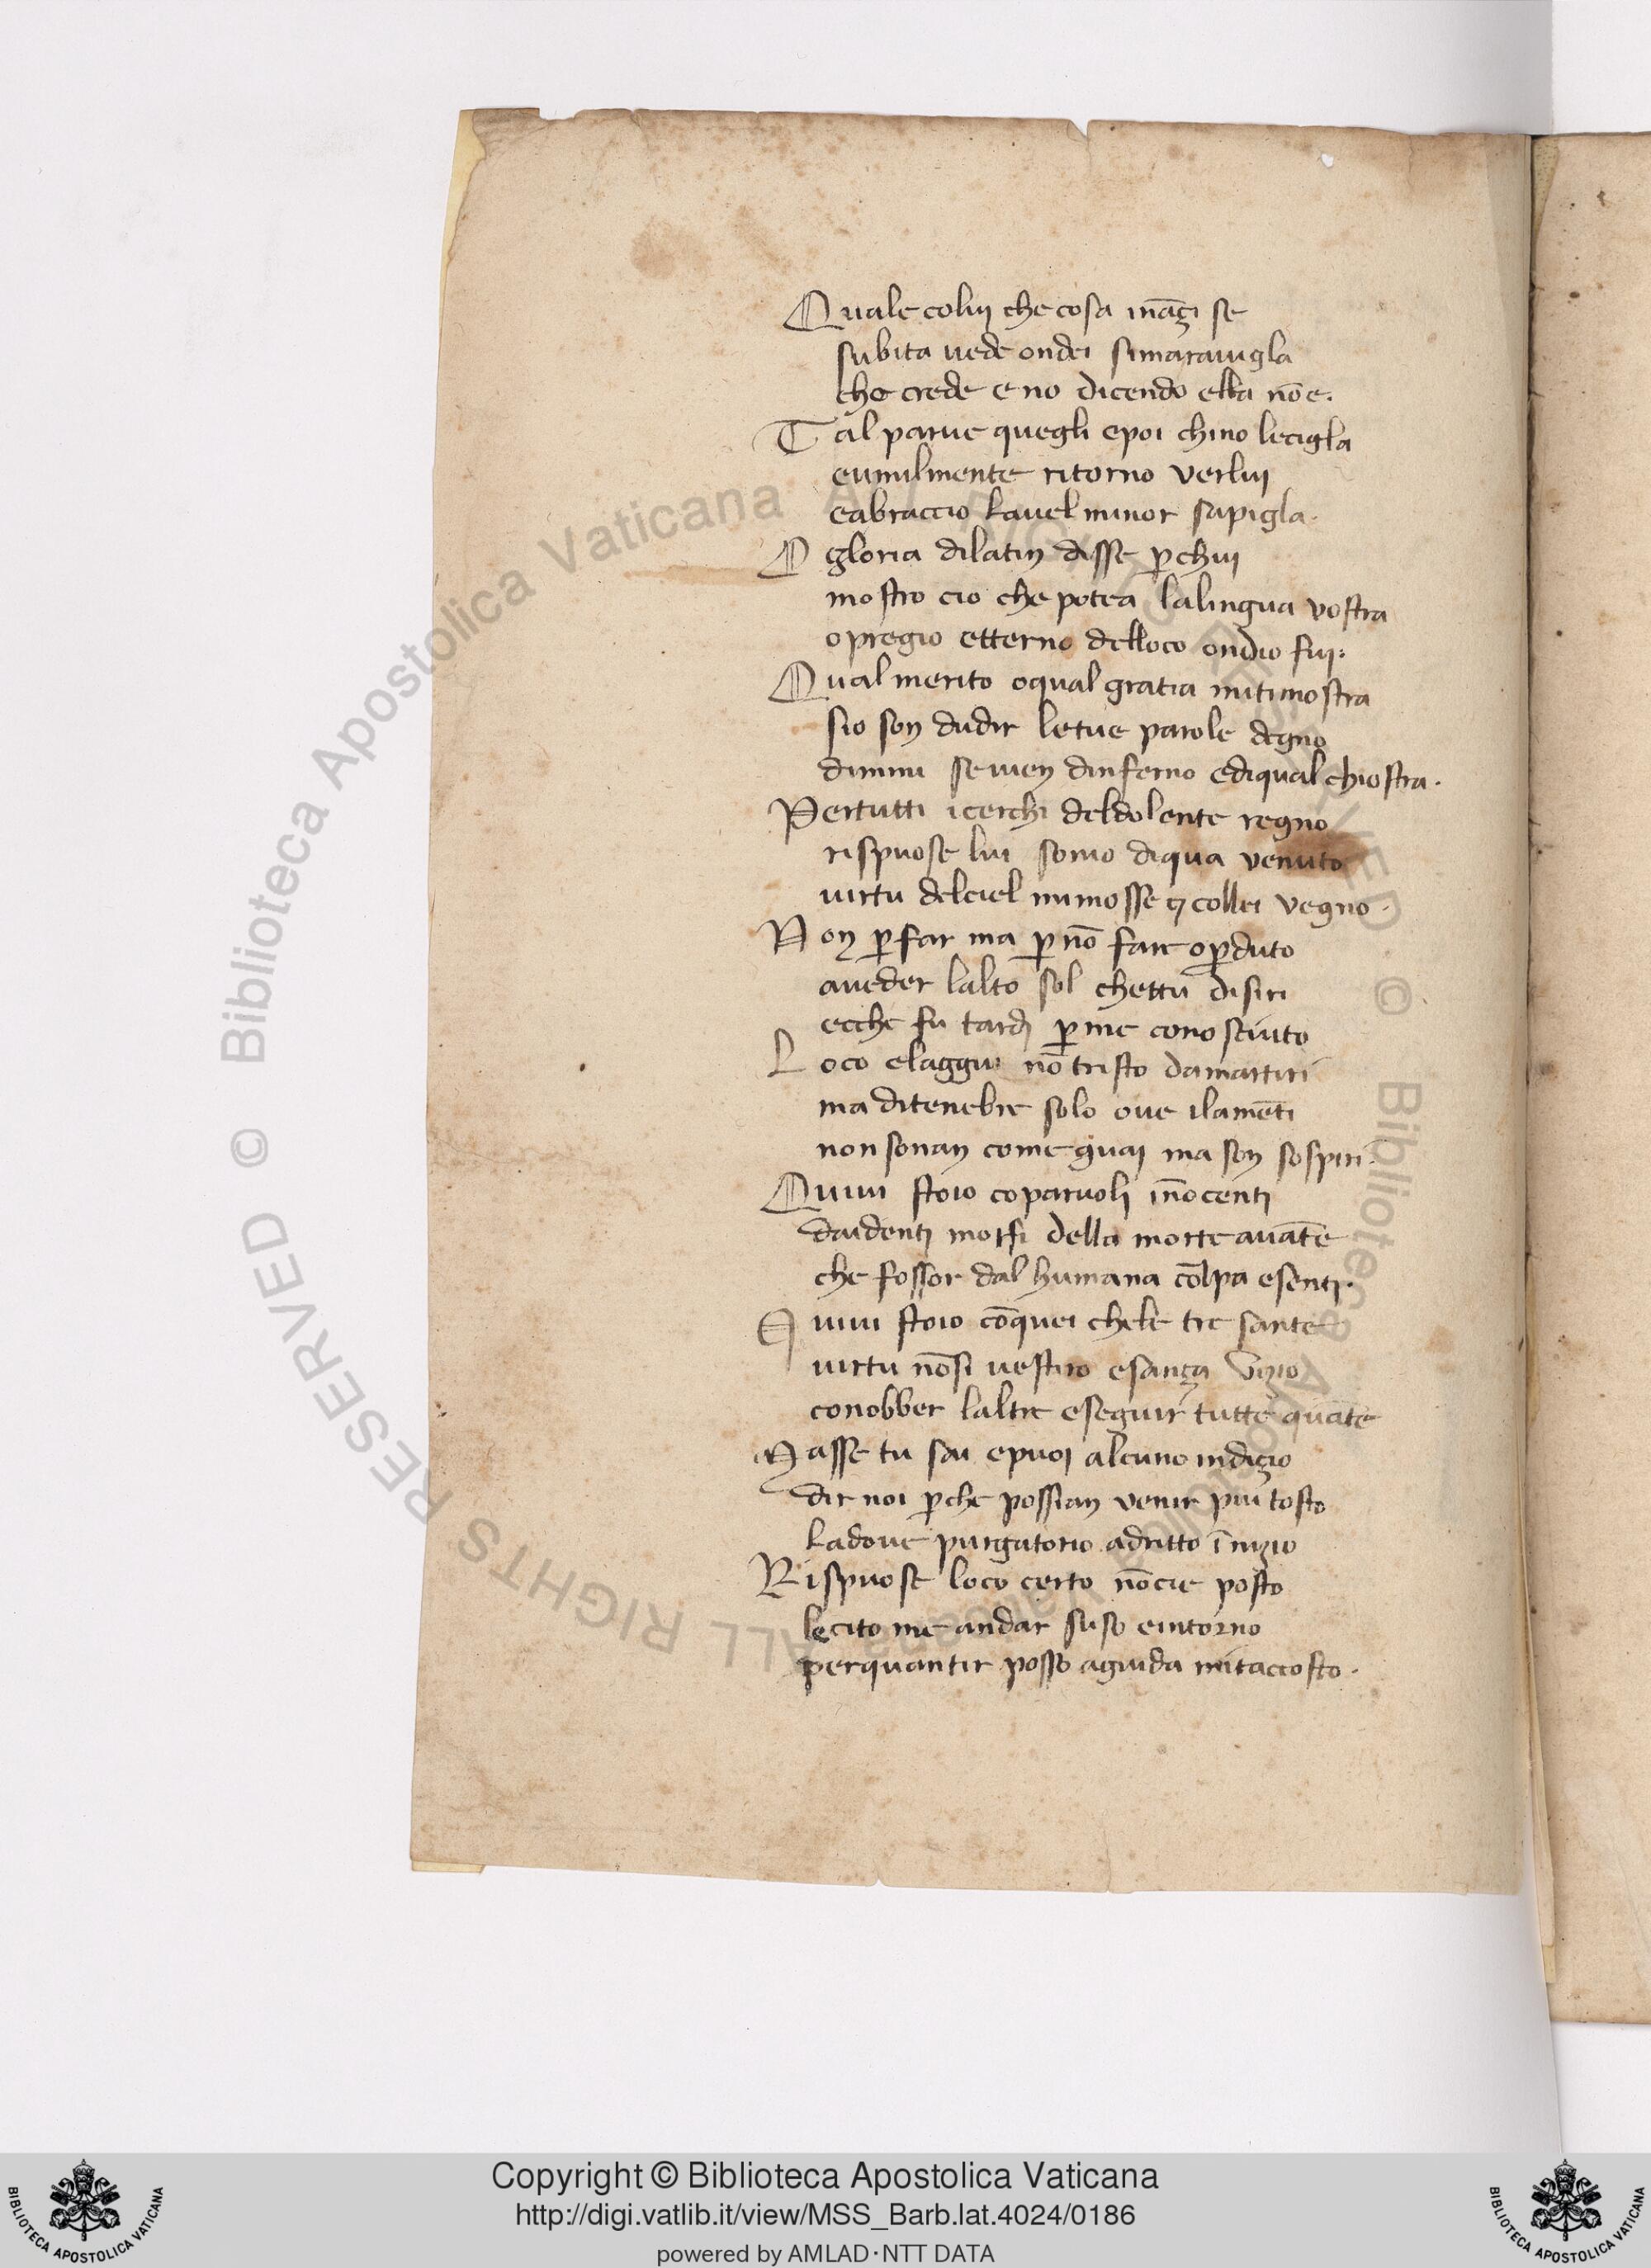 Quale coluj che cosa ināçi se
subita uede ondei simarauigla
che crede e no dicendo ella nōe.
Tal parue quegli epoi chino lecigla
eumilmente ritorno verluj
eabraccio lauel minor sapigla.
O gloria dilatin disse p̄chuj
mostro cio che potea lalingua vostra
opregio etterno delloco ondio fuj.
Qual merito oqual gratia mitimostra
sio son dudir letue parole degno
dimmi seuien dinferno ediqual chiostra.
Pertutti icerchi deldolente regno
rispuose lui sonio diqua venuto
uirtu delciel mimosse ⁊ collei vegno.
Non p̄far ma p̄ nō fare op̄duto
aueder lalto sol chettu disiri
ecche fu tardj p̄ me conosciuto
Loco elaggiu nō tristo damartiri
ma ditenebre solo oue ilamēti
non sonan come guaj ma son sospiri.
Quiui stoio coparuoli īnocentj
daidentj morsi della morte auāte
che fossor dal humana cōlpa esentj.
Quiui stoio cōquei chele tre sante
uirtu nōsi uestiro esança viçio
conobber laltre eseguir tutte quāte
Masse tu sai epuoj alcuno indiçio
dir noi p̄che possian venir piu tosto
ladoue purgatorio adritto īniçio
Rispuose loco certo nōcie posto
lecito me andar suso eintorno
perquantir posso aguida mitaccosto.
Copyright © Biblioteca Apostolica Vaticana
http://digi.vatlib.it/view/MSS_Barb.lat.4024/0186
powered by AMLAD·NTT DATA
BIBLIOTECA APOSTOLICA VATICANA
BIBLIOTECA APOSTOLICA VATICANA
© Biblioteca Apostolica Vaticana ALL RIGHTS RESERVED © Biblioteca Apostolica Vaticana ALL RIGHTS RESERVED